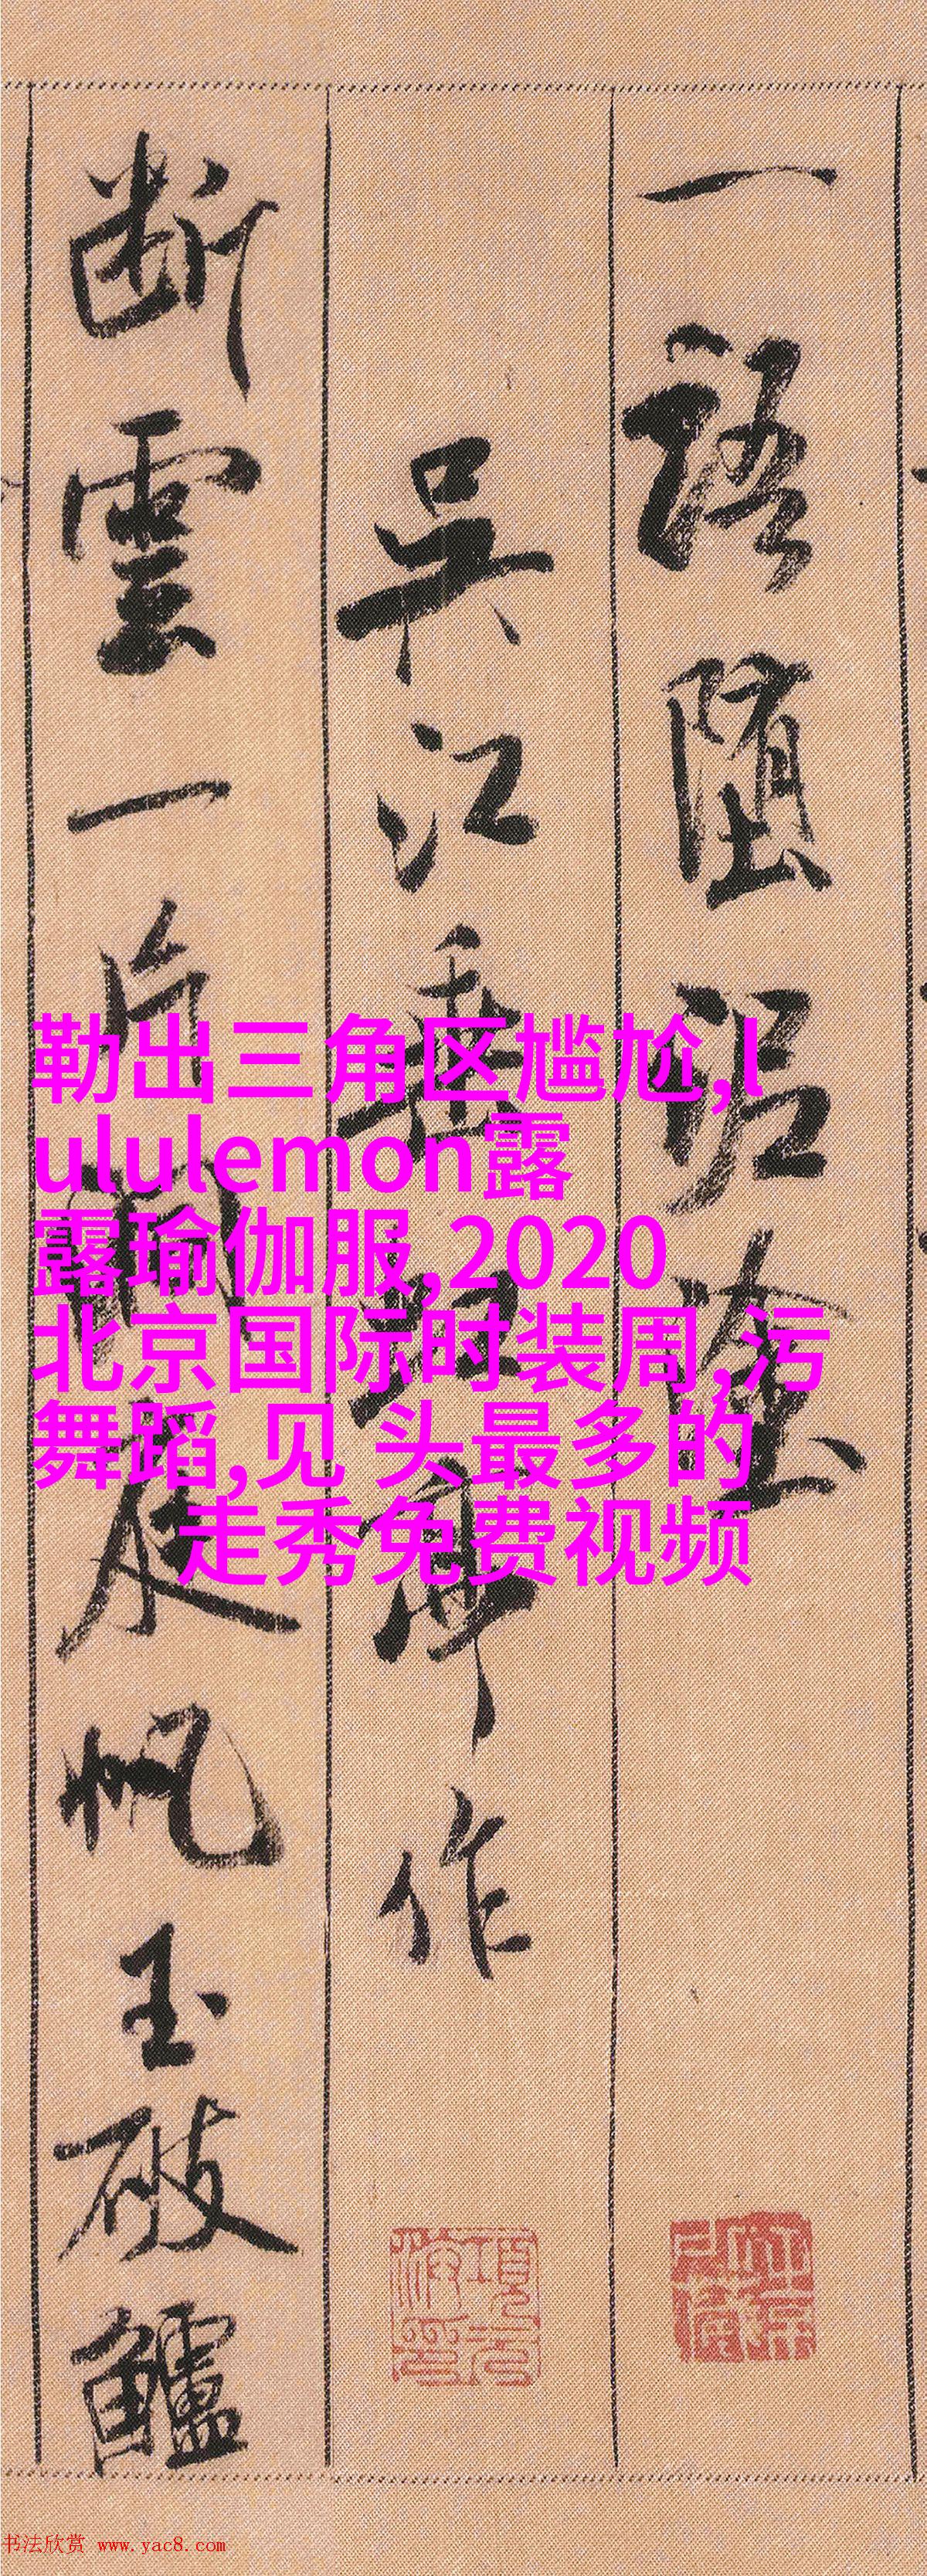 一語堕泥塗
吳江垂虹亭作
断雲一片洞庭帆玉破鱸
勒出三角区尴尬,l
ululemon露
露瑜伽服,2020
北京国际时装周,污
舞蹈,见 头最多的
走秀免费视频
书法欣赏 www.yac8.com